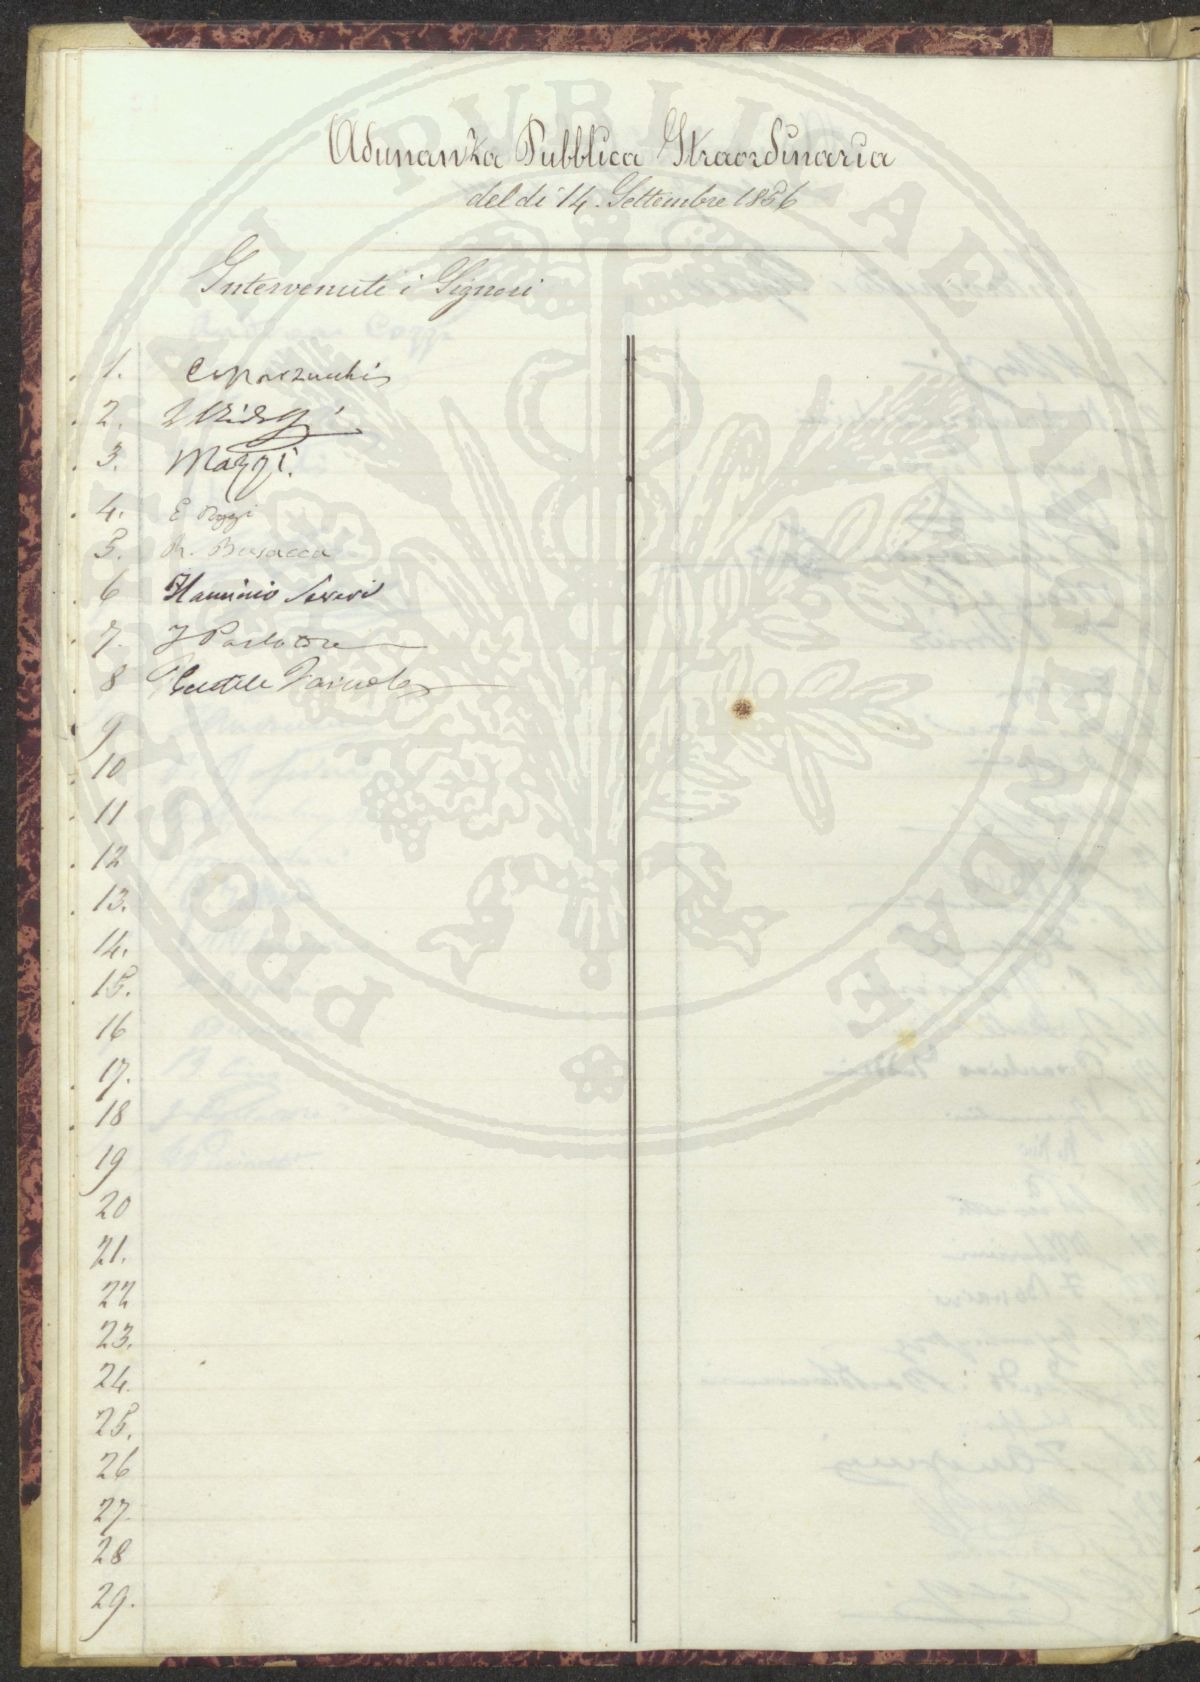 Adunanza Pubblica Straordinaria
del dì 14. Settembre 1856
Intervenuti i Signori
1. Caporzucchi
2.
3. Mazzi.
4. E Poggi
5. R. Busacca
6 Flaminio Severi
7. F Parlatore
8 Gentile Farinola
9
10
11
12
13.
14.
15.
16
17.
18
19
20
21.
22
23.
24.
25.
26
27.
28
29.
PROSPERITATI PUBLICAE AUGENDAE